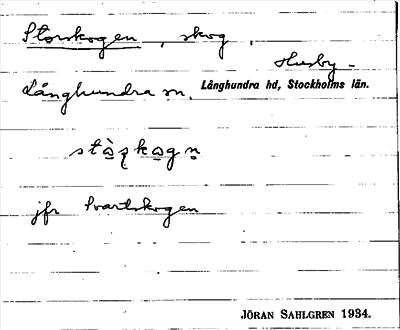 Storskogen, skog,
Husby-
Långhundra sn. Långhundra hd, Stockholms län.
jfr Svartskogen
JÖRAN SAHLGREN 1934.